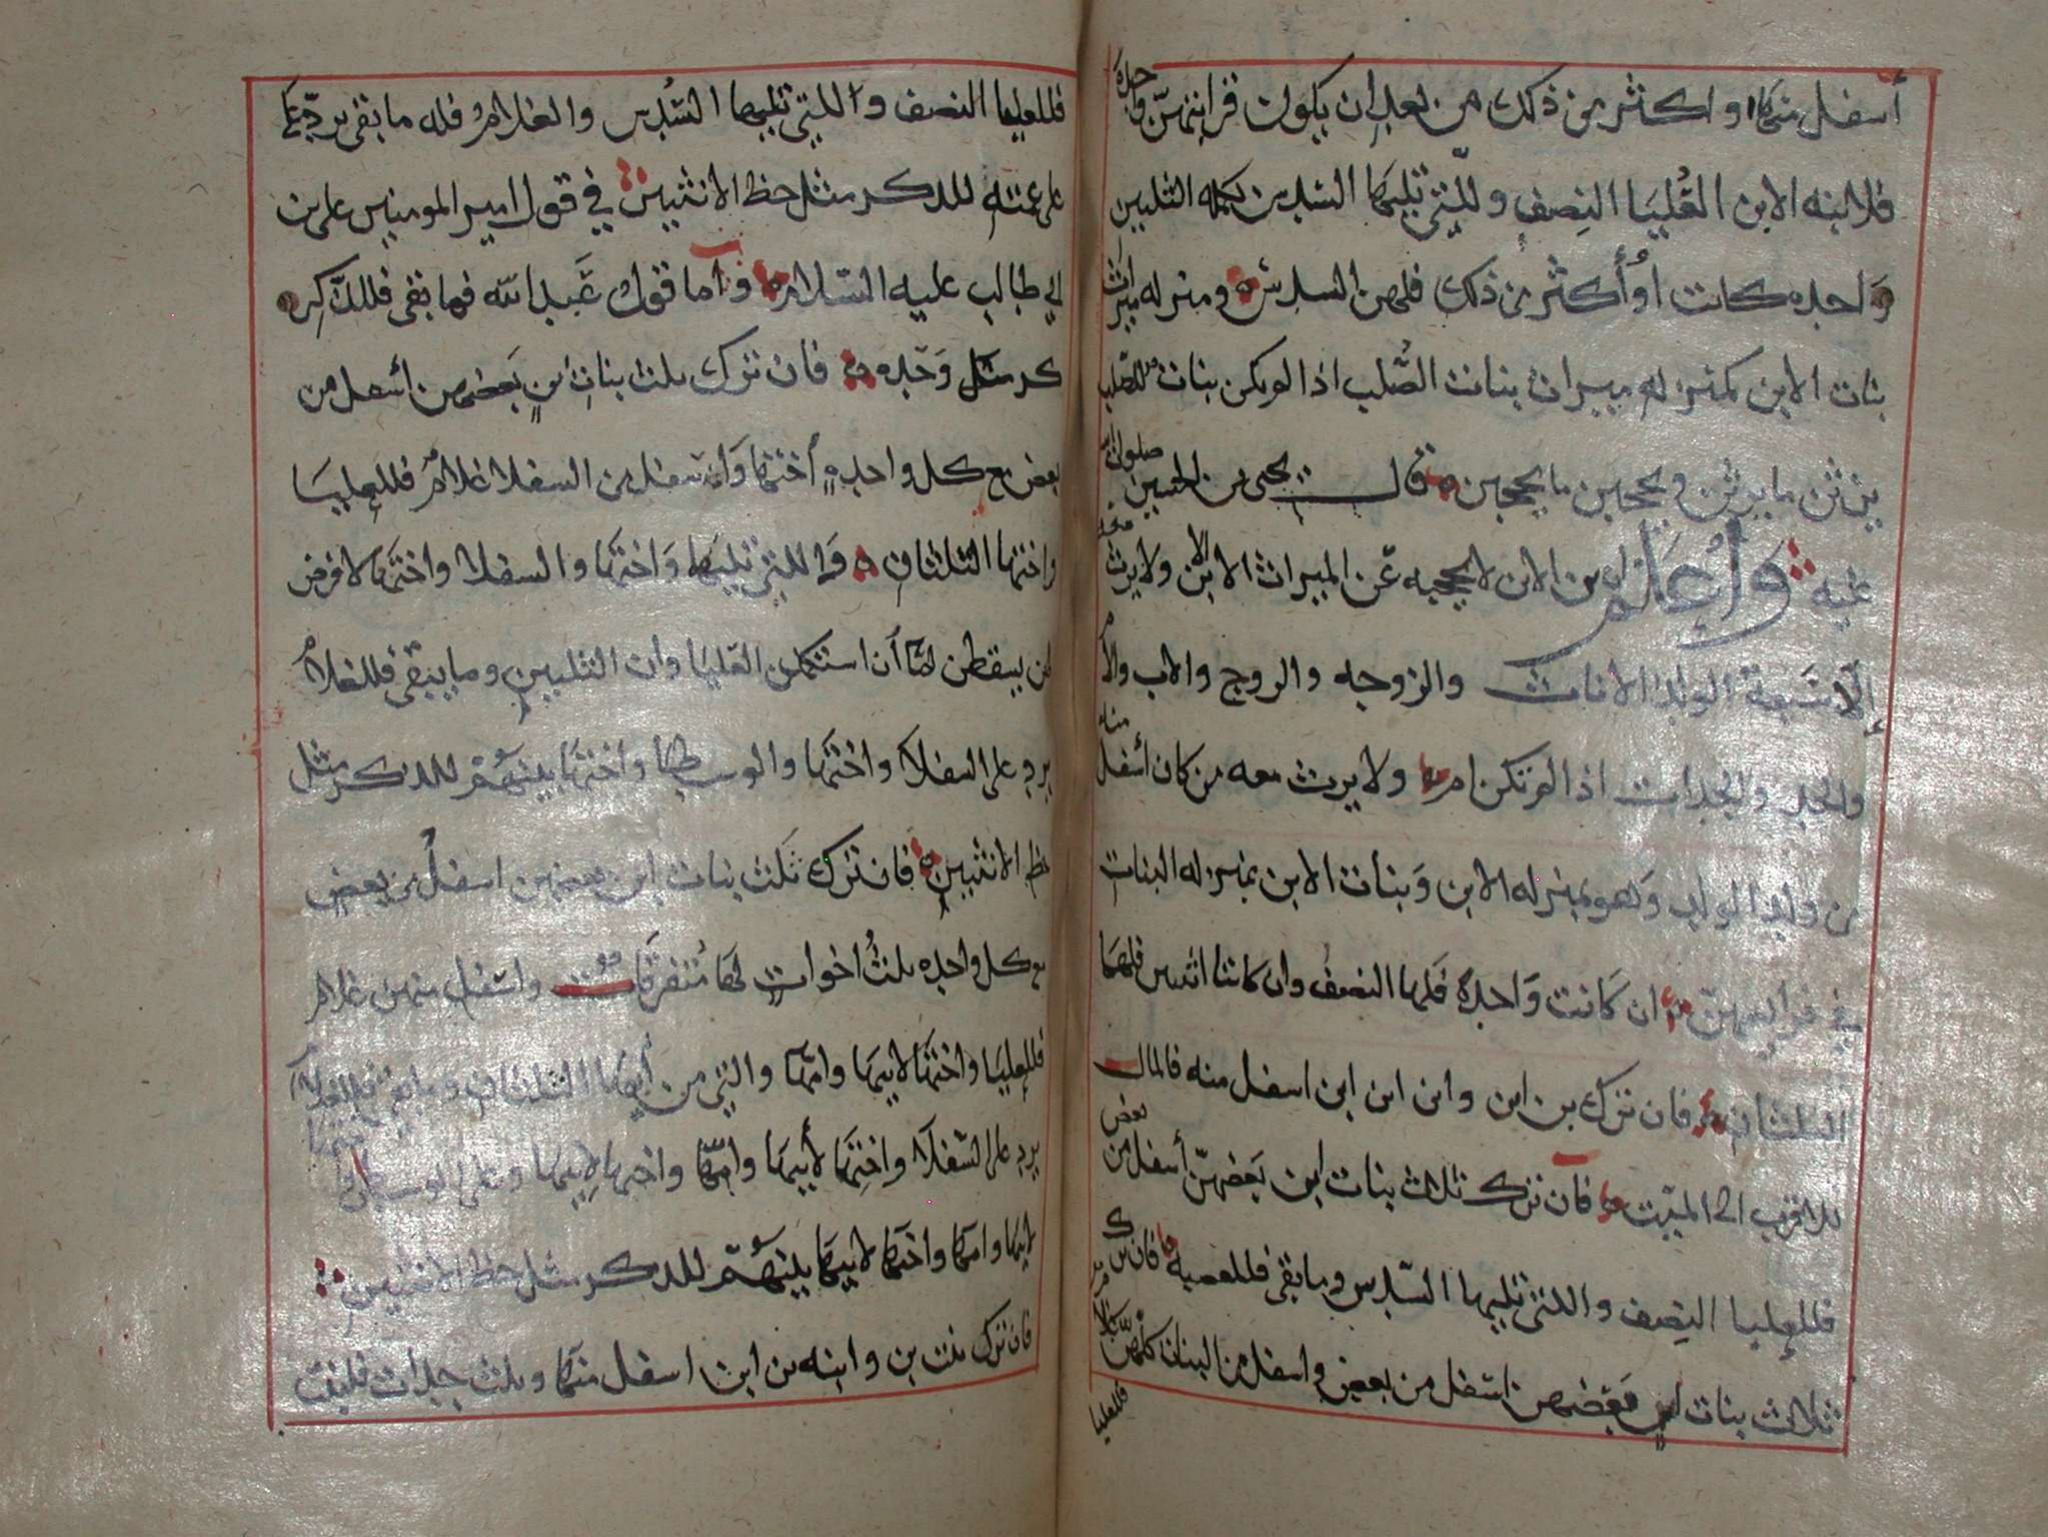 أسفل منها واكثر من ذلك من بعد ان يكون قرابتهن واحده
فلابنه الابن العُليَا النِصف وللتي تليها السدس تكمله الثلثين
وَاحده كانت اوُ أكثر من ذلك فلهن السدس ومنزله ميراث
بنات الابن بمنزله ميراث بنات الصُّلب اذا لم يكن بنات للصلب
يرثن ما يرثن ويحجبن ما يحجبن قال يحيى بن الحسين صلوات الله
عليه وَأعلم ان بن الابن لا يحجبه عَن الميراث الا الابن ولا يرث معه
إلّا سَبعة الولد الاناث والزوجه والزوج والاب والأم
والجد والجدات اذا لم تكن ام ولا يرث معه من كان أسفل منه
من ولد الولد وَهو بمنزله الابن وَبنات الابن بمنزله البنات
في فرايضهن ان كَانت وَاحدة فَلها النصف وان كانتا اثنتين فلهما
الثلثان فان ترك بن ابن وابن ابن ابن اسفل منه فالمال
للاقرب الى الميّت فان ترك ثلاث بنات ابن بَعضهنّ أسفل من بعض
فللعليا النِصف واللتي تليها السّدس وما بقى فللعصبه فان ترك
ثلاث بنات ابن بَعضهن اسفل من بعض واسفل من البنات كلهنّ غلام
فللعليا
فللعليا النصف واللتي تليها السُدس والغلامُ فله ما بقى يردّ
على عمته للذكر مثل حظ الانثيين في قول امير المومنين على بن
ابي طالب عليه السّلام وَأما قول عَبد الله فما بقى فللذَّكر
وَحده فان ترك ثلث بنات ابنٍ بَعضهن أسفل من
بعض مع كل واحدهٍ أختها وَاسفل من السفلا غلامٌ فللعليا
واختها الثلثان وَاللتي تليها وَاختها والسفلا واختها لا فرض
لهن يسقطن لمّا أن استكمل العُليَا وان الثلثين وما يبقى فللغلامُ
يرد على السفلا واختها والوسطى واختها بينهُمّ للذكر مثل
حظ الانثيين فان ترك ثَلث بنات ابن بعضهن اسفلُ من بعض
مع كل واحده ثلثُ اخواتٍ لها مُتفرقَات واسفل منهن غلام
فللعليَا واختها لابيها وامّها والتي من أبيها الثلثان وما بقى فللغلام
يرد على السّفلا واختها لأبيها وامّها واختها لابيها وعلى الوسطى واختها
لابيها وامها واختها لابيها بينهُمّ للذكر مثل حظ الانثيين
فان ترك ثلث بن وابنه بن ابن اسفل منها وثلث جدات فلبنت